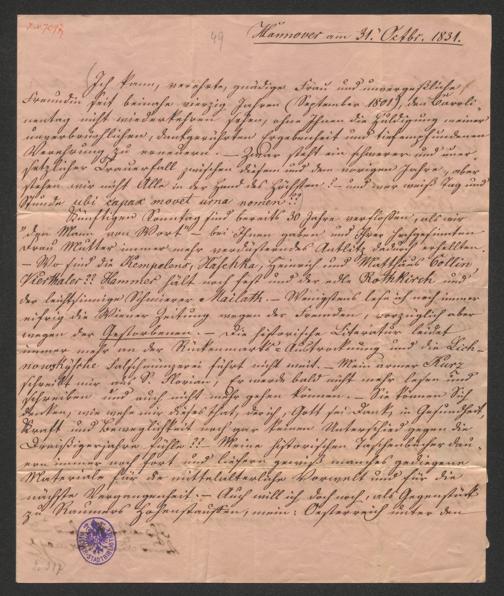 49
Hannover am 31. Octbr. 1831.
Ich kann, verehrte, gnädige Frau und unvergeßliche
Freundin seit beinahe vierzig Jahren (September 1801), den Caroli-
nentag nicht wiederkehren sehen, ohne Ihnen die Huldigung meiner
unverbrüchlichen, dankgerührten Ergebenheit und tiefempfundenen
Verehrung zu erneuern. — Zwar steht ein schwerer und uner-
setzlicher Trauerfall zwischen diesem und dem vorigen Jahre, aber
stehen wir nicht Alle in der Hand des Höchsten!– und wer weiß Tag und
Stunde ubi capax movet urna nomen!?
Künftigen Sonntag sind bereits 30 Jahre verflossen, als wir
"den Mann von Wort" – bei Ihnen gaben und Ihrer hochgesinnten
Frau Mutter immer mehr verdüsterndes Antlitz, dadurch erhellten.
– Wo sind die Kempelens, Haschka, Heinrich und Matthäus Collin
Vierthaler?? Hammer hält noch fest und der edle Rothkirch und
der leichtsinnige Schmierer Mailath. – Wenigstens lese ich noch immer
eifrig die Wiener Zeitung wegen der Fremden, vorzüglich aber
wegen der Gestorbenen. – Die historische Literatur leidet
immer mehr an der Rückenmarks-Austrocknung und die Lich-
nowskysche Falschmünzerei führt nicht weit. – Mein armer Kurz
schreibt mir aus S. Florian, er werde bald nicht mehr lesen und
schreiben und auch nicht mehr gehen können. – Sie können Sich
denken, wie wehe mir dieses that, der ich, Gott sei Dank, in Gesundheit
Kraft und Beweglichkeit noch gar keinen Unterschied gegen die
Dreißigerjahre fühle?? Meine historischen Taschenbücher dau-
ern immer noch fort und liefern gewiß manches gediegene
Materiale für die mittelalterliche Vorwelt und für die
nächste Vergangenheit. – Auch will ich doch noch, als Gegenstück
zu Raumers Hohenstauffen, mein: Oesterreich unter den